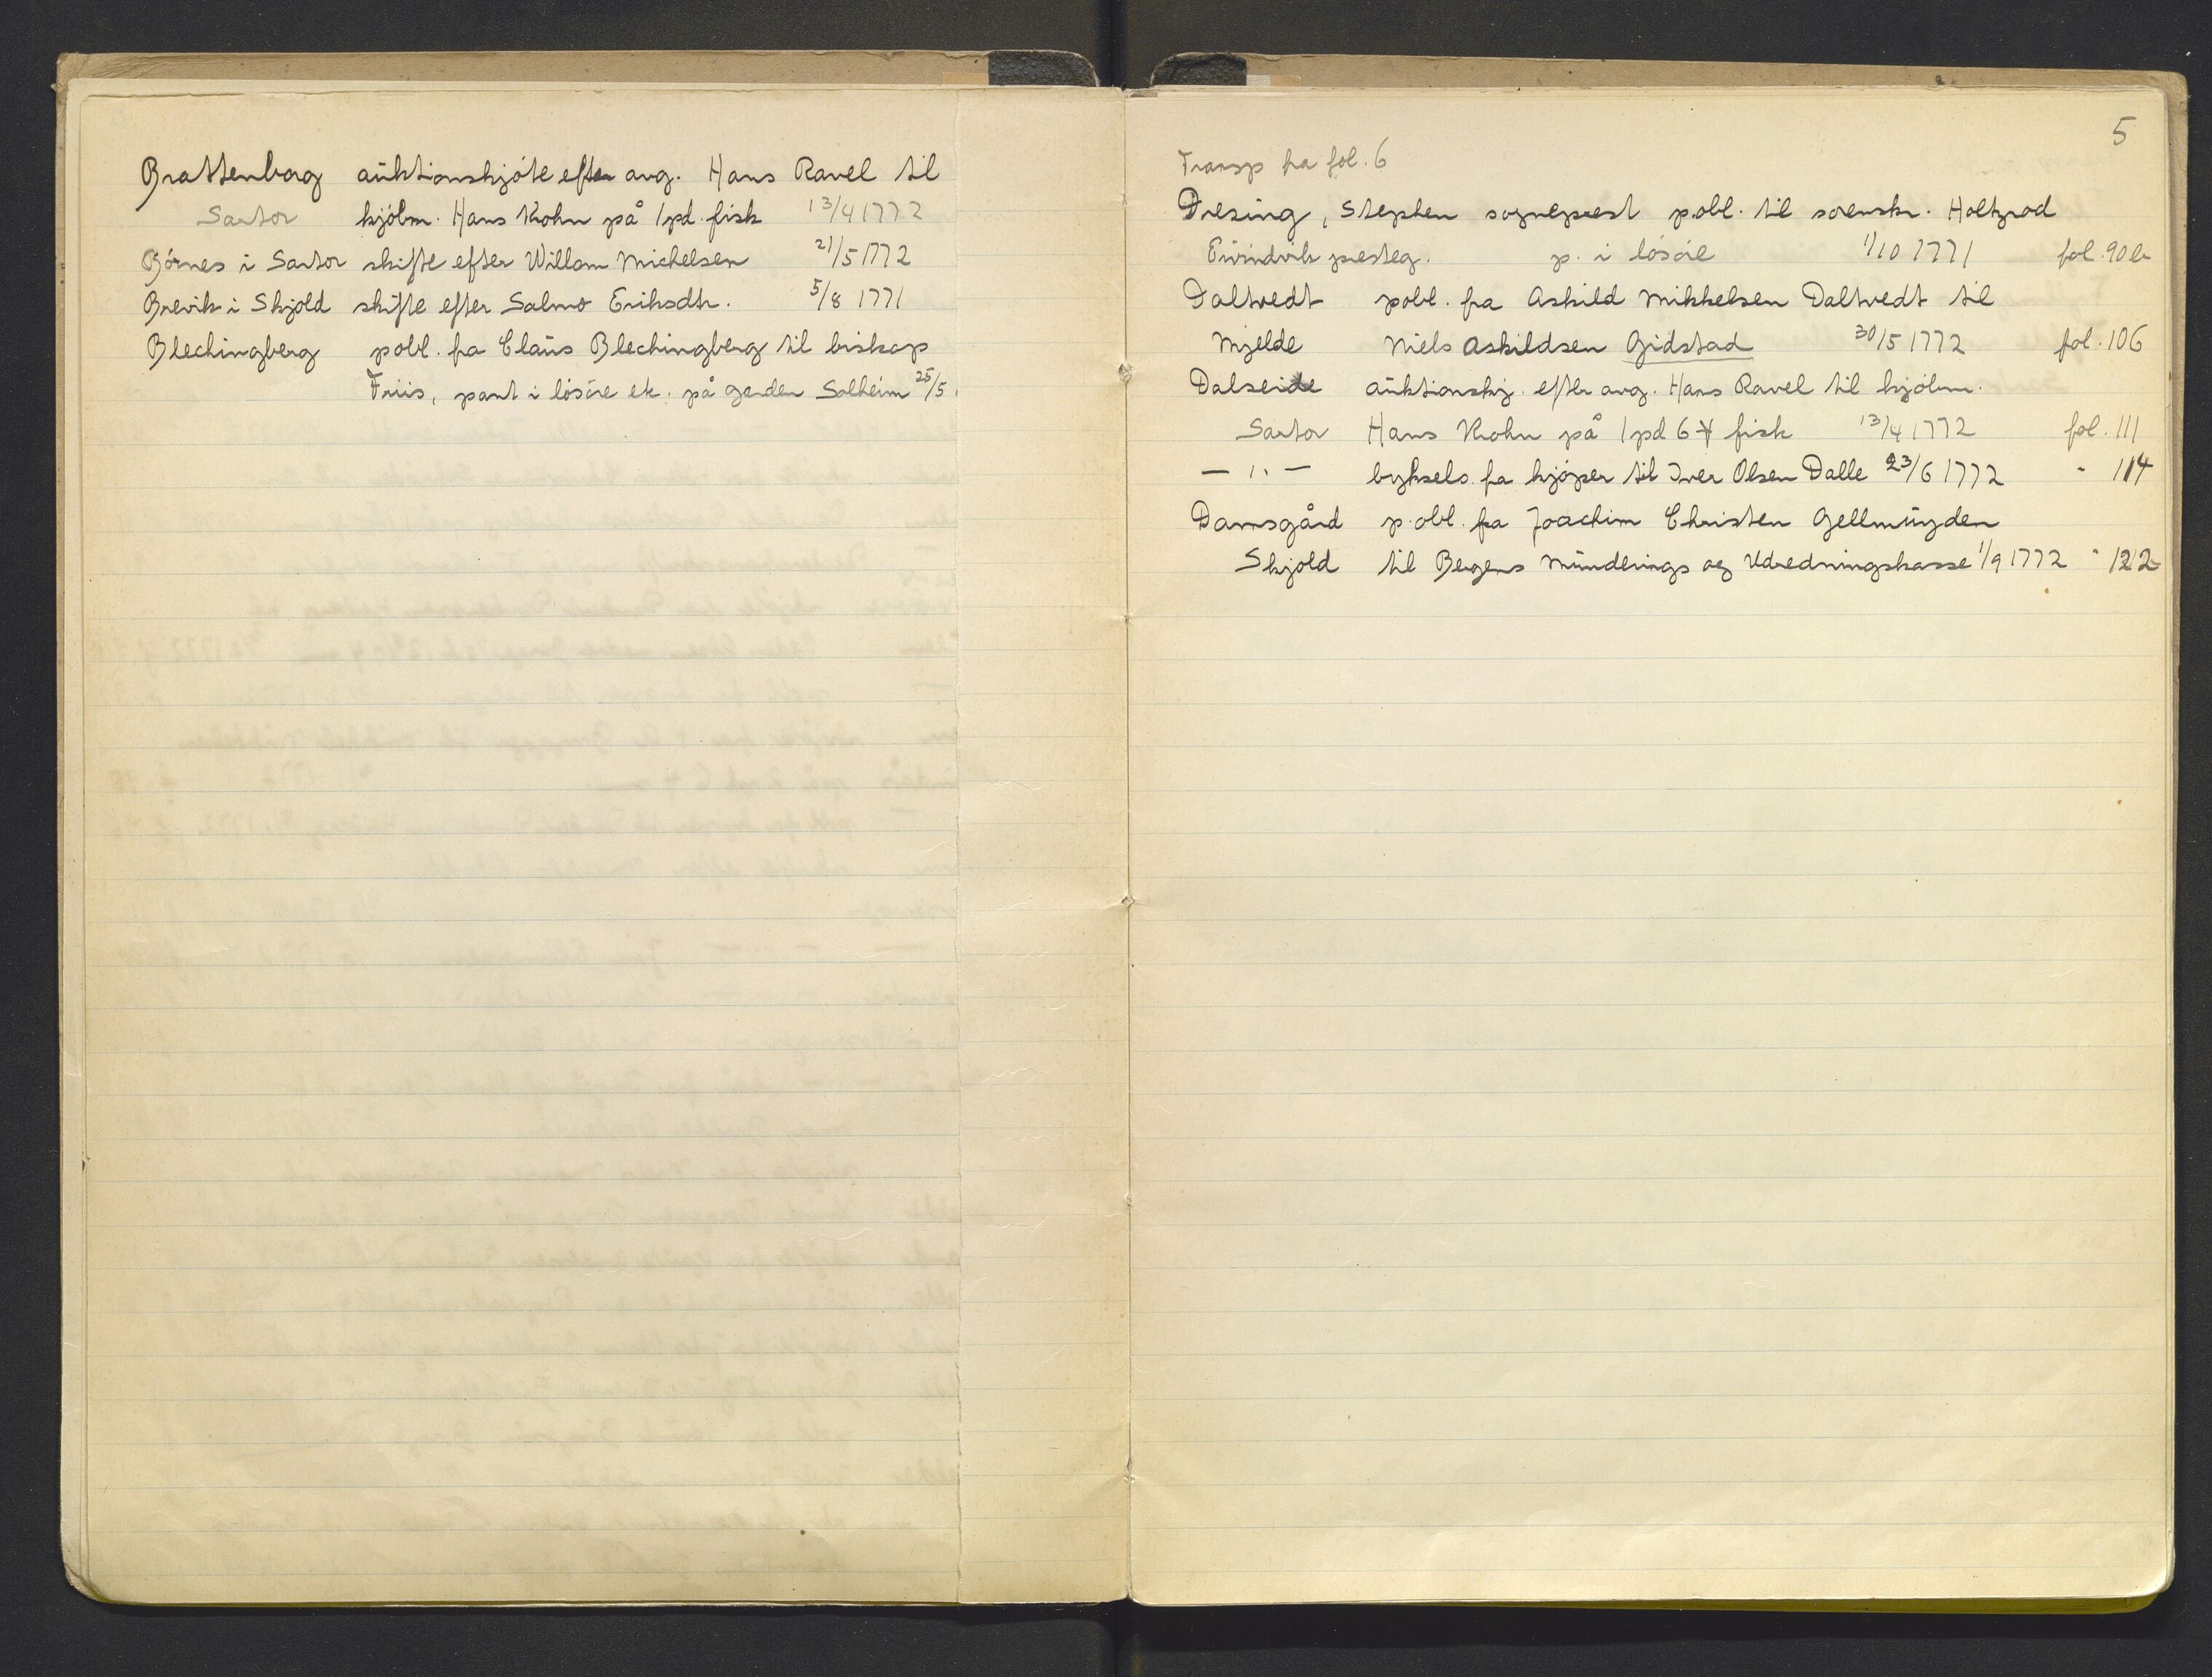 Brattenborg auktionskjöte efter avg. Hans Ravel til
Sartor kjöbm. Hans Krohn på 1 pd. fisk 13/4 1772
Börnes i Sartor skifte efter Willom Michelsen 21/5 1772
Brevik i Skjold skifte efter Salmo Eriksdtr. 5/8 1771
Blechingberg pobl. fra Claus Blechingberg til biskop
Friis, pant i lösöre etc. på garden Solheim 25/5.
5
Transp fra fol. 6
Dresing, Stephen sogneprest p.obl. til sorenskr. Holtzrod
Eivindvik presteg. p. i lösöre 1/10 1771 fol. 90 b
Daltvedt pobl. fra Askild Mikkelsen Daltvedt til
Mjelde Niels Askildsen Gidstad 30/5 1772 fol. 106
Dalseide auktionskj. efter avg. Hans Ravel til kjöbm.
Sartor Hans Krohn på 1 pd 6 fisk 13/4 1772 fol. 111
— " — byksels. fra kjöper til Iver Olsen Dalle 23/6 1772 " 114
Damsgård p.obl. fra Joachim Christen Gellmuyden
Skjold til Bergens Munderings og Udredningskasse 1/9 1772 " 122